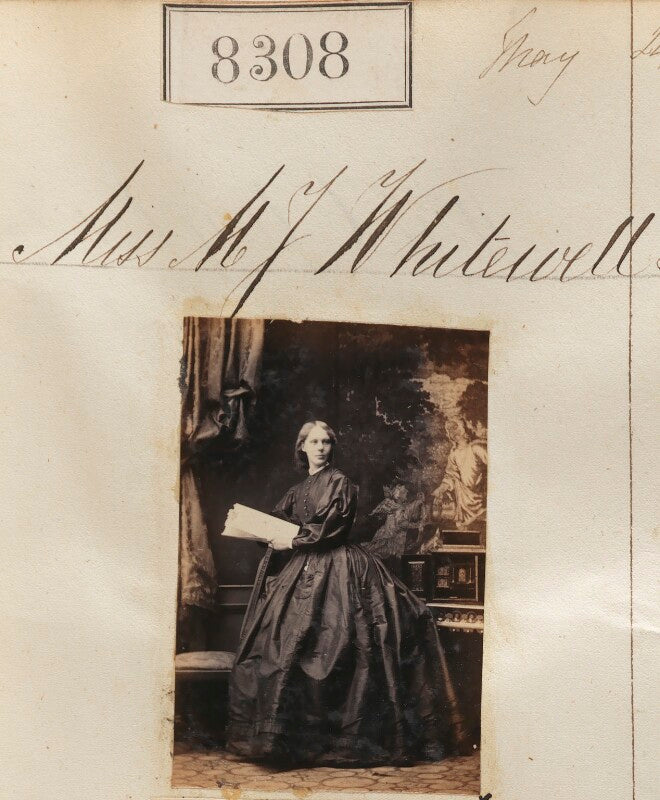 8308
May
Miss M J Whitewell